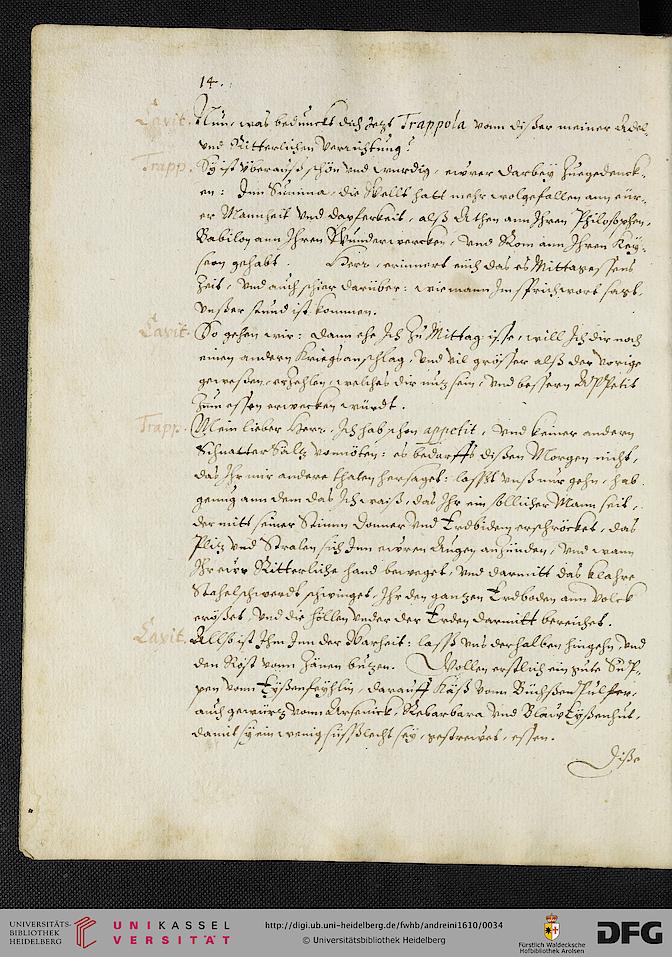 14.
Cavit. Nun, was bedunckt dich Jetzt Trappola vonn diser meiner Adel.
vnd Ritterlichen verrichtung?
Trapp. Sy ist vberauß schön vnd wurdig, ewrer darbey Zuegedenck-
en: Inn Summa, die Wellt hatt mehr wolgefallen ann eür-
er Mannheit vnd dapferkeit, alß Athen ann Ihren Philosophen,
Babilon ann Ihren Wunderwercken, vnd Rom ann Ihren Key-
sern gehabt. Herr, erinnert eüch das es Mittagessens
Zeit, vnd auch schier darüber: wie mann Im sprichwort sagt,
vnßer stund ist kommen.
Cavit. So gehen wir: dann ehe Ich Zu Mittag isse, will Ich dir noch
einen andern Kriegsanschlag, vnd vil grösser alß der vorige
geweßen, erzehlen, welches dir nutz sein, vnd bessern APPetit
Zum essen erwecken würdt.
Trapp. Mein lieber Herr, Ich hab schon appetit, vnd keiner andern
Schnatter Saltz vonnöten: es bedarffs dißen Morgen nicht,
das Ihr mir andere thaten hersaget: lasst vnß nur gehn, hab
genug ann dem das Ich waiß, das Ihr ein söllicher Mann seit,
der mitt seiner Stimm Donner vnd Erdbidem erschröcket, das
Plitz vnd Stralen sich Inn ewren Augen anzünden, vnd wann
Ihr eure Ritterliche hand beweget, vnd darmitt das klahre
Stahelschwerdt schwinget, Ihr den gantzen Erdboden ann Volck
eryßet, vnd die höllen vnder der Erden darmitt bereichet.
Cavit. Allso ist Ihm Inn der Warheit: lasst vns derhalben hingehn, vnd
den Rost vonn Zänen butzen. Wollen erstlich ein gute SuP-
pen vonn Eyßenfeyhlin, darauff Käß vonn BüchßenPulffer,
auch gewurtz vonn Arsenick, Rebarbara vnd Blaw Eyßenhut,
damit sy ein wenig süsslecht sey, gestrewet, essen.
Diße
UNIVERSITÄTS-
BIBLIOTHEK
HEIDELBERG
UNIKASSEL
VERSITÄT
http://digi.ub.uni-heidelberg.de/fwhb/andreini1610/0034
© Universitätsbibliothek Heidelberg
Fürstlich Waldecksche
Hofbibliothek Arolsen
DFG